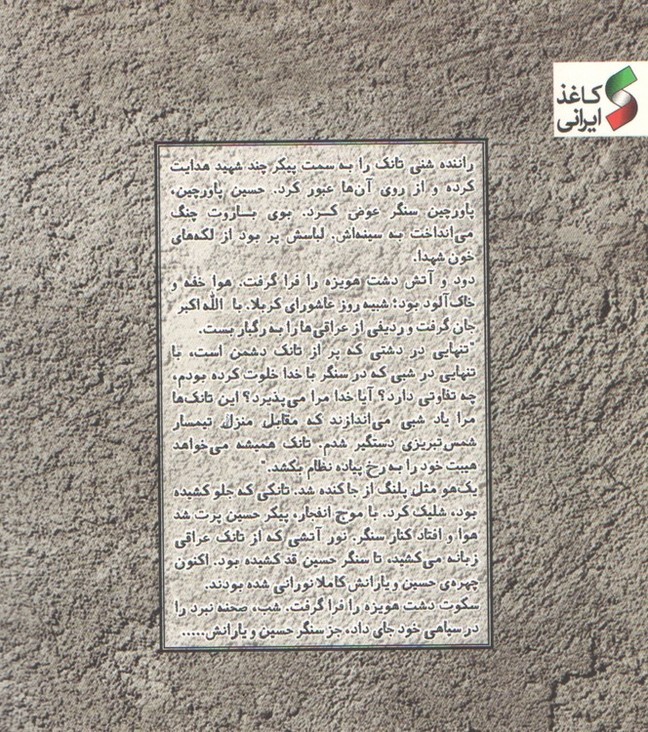 کاغذ
ایرانی
راننده شنی تانک را به سمت پیکر چند شهید هدایت
کرده و از روی آن‌ها عبور کرد. حسین پاورچین،
پاورچین سنگر عوض کرد. بوی باروت چنگ
می‌انداخت به سینه‌اش. لباسش پر بود از لکه‌های
خون شهدا.
دود و آتش دشت هویزه را فرا گرفت. هوا خفه و
خاک‌آلود بود؛ شبیه روز عاشورای کربلا. با الله‌اکبر
جان گرفت و ردیفی از عراقی‌ها را به رگبار بست.
"تنهایی در دشتی که پر از تانک دشمن است، با
تنهایی در شبی که در سنگر با خدا خلوت کرده بودم،
چه تفاوتی دارد؟ آیا خدا مرا می‌پذیرد؟ این تانک‌ها
مرا یاد شبی می‌اندازند که مقابل منزل تیمسار
شمس‌تبریزی دستگیر شدم. تانک همیشه می‌خواهد
هیبت خود را به رخ پیاده نظام بکشد."
یک‌هو مثل پلنگ از جا کنده شد. تانکی که جلو کشیده
بود، شلیک کرد. با موج انفجار، پیکر حسین پرت شد
هوا و افتاد کنار سنگر. نور آتشی که از تانک عراقی
زبانه می‌کشید، تا سنگر حسین قد کشیده بود. اکنون
چهره‌ی حسین و یارانش کاملا نورانی شده بودند.
سکوت دشت هویزه را فرا گرفت. شب، صحنه نبرد را
در سیاهی خود جای داد، جز سنگر حسین و یارانش.....